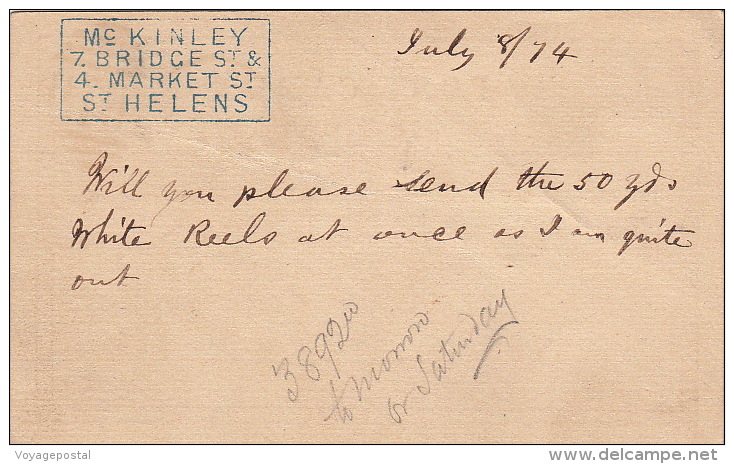 Mc KINLEY
7. BRIDGE ST &
4. MARKET ST
ST HELENS
July 8/74
Will you please send the 50 yds
White Reels at once as I am quite
out
3892
to morrow
or Saturday
Voyagepostal
delcampe.net